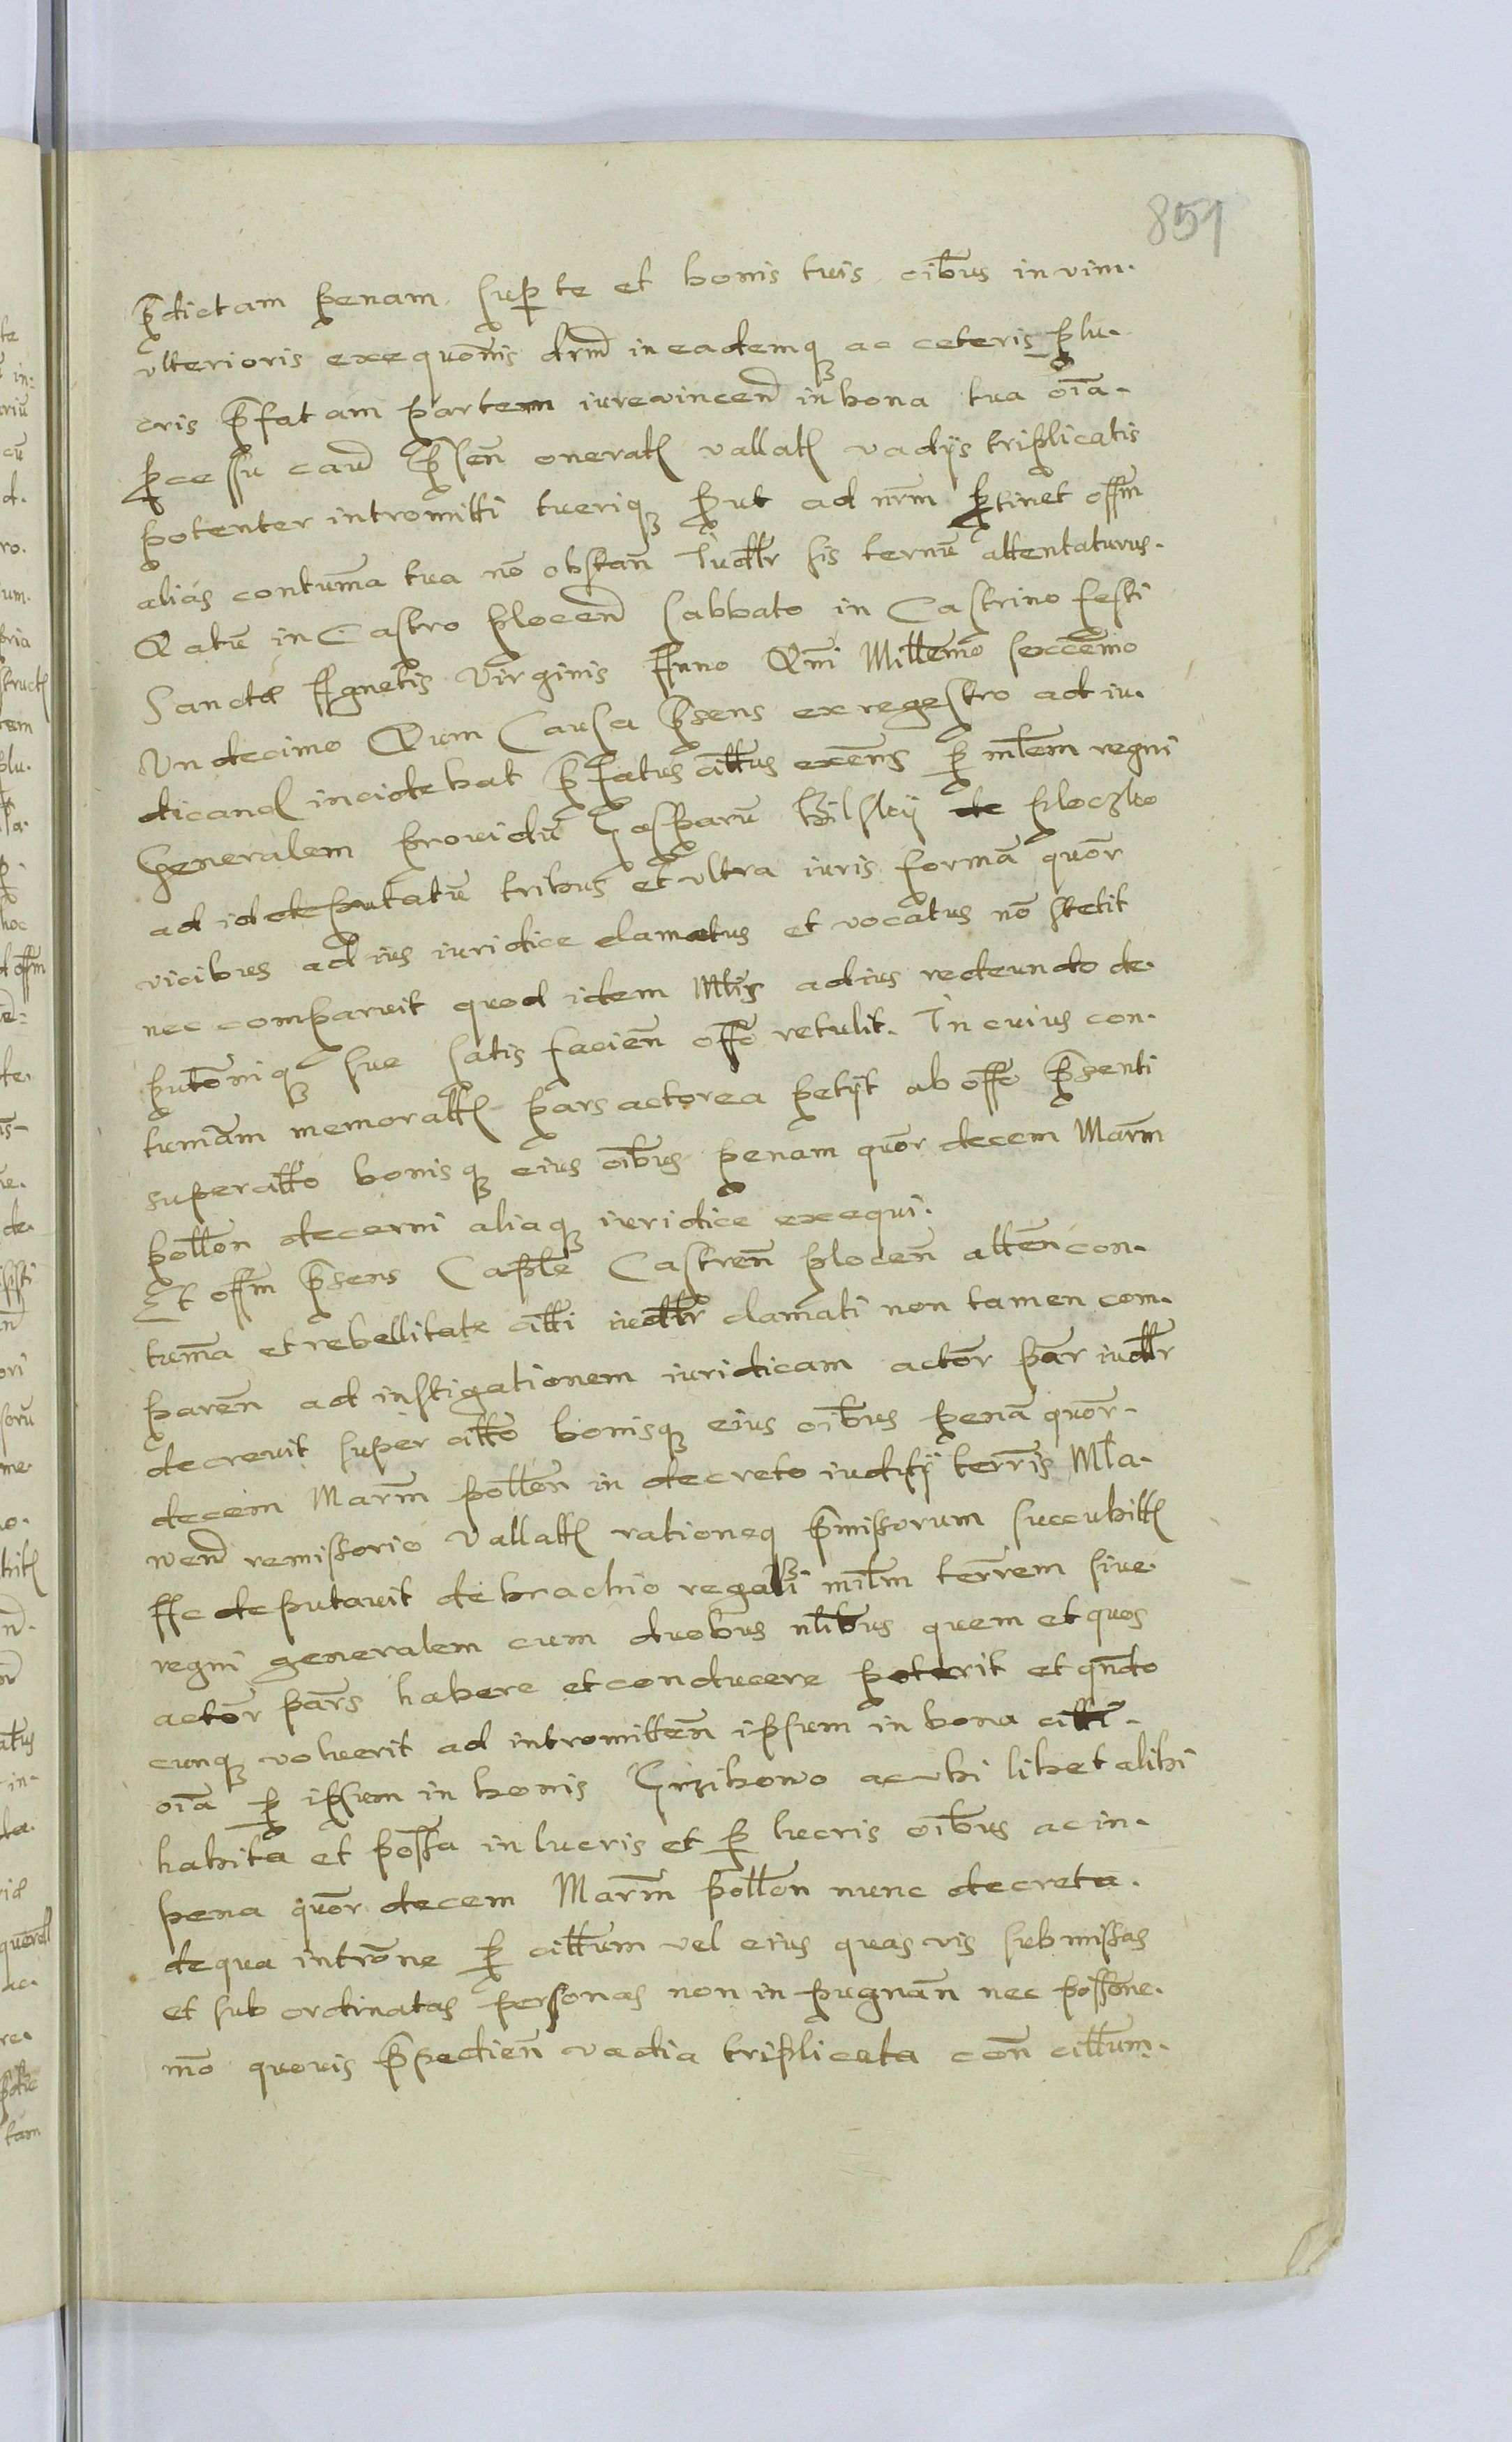 851
p̄dictam penam sup̱ te et bonis tuis oībus in vim
vlterioris exequōnis drm̄ in eademq̨ ac ceteris plu
cris p̄fatam partem iurevincen̄ in bona tua oīa
p̱cessu caus̄ p̄sen̄ onerat̄ vallat̄ vadijs triplicatis
potenter intromitti tueriq̨ p̱ut ad nr̄m p̱tinet off̄m
aliás contum̄a tua nō obstan̄ Iudlr̄ sis ternū attentaturus.
Datū in Castro plocen̄ Sabbato in Castrino festi
Sanctæ Agnetis Virginis Anno Dn̄i Millem̄o sexcēmo
Vndecimo Dum Causa p̄sens ex regestro ad iu
dicand̄ incidebat p̄fatus citt̄us exēns p̱ mlēm regni
Generalem providū Gasparū Bilsky de Ploczko
ad id deputatū tribus et vltra iuris formā quōr
vicibus ad ius iuridice clamatus et vocatus nō stetit
nec comparuit quod idem Mlis̄ ad ius redeundo de
putōniq̨ sue satis facien̄ offō retulit. In cuius con
tumām memorat̄ pars actorea petijt ab offō p̄senti
super citt̄o bonisq̨ eius oībus penam quōr decem Marm̄
pollōn decerni aliaq̨ iuridice exequi.
Et off̄m p̄sens Caplē Castren̄ plocen̄ atten̄ con
tum̄a et rebellitate citt̄i iudlr̄ clamati non tamen com
paren̄ ad instigationem iuridicam actōr par̄ iudlr̄
decrevit super citt̄o bonisq̨ eius oībus penā quōr
decem Marm̄ pollōn in decreto iuditij terrīs Mla
wen̄ remissorio vallat̄ rationeq̨ p̄missorum succubit̄
Ac deputavit de brachio regali mil̄m terrēm siue
regni generalem cum duobus nlībus quem et quos
actōr pars̄ habere et conducere poterit et qn̄do
cunq̨ voluerit ad intromitten̄ ipsum in bona citt̄i
oīa p̱ ipsum in bonis Grzibowo ac vbi libet alibi
habita et possa in lucris et p̱ lucris oībus ac in
pena quōr decem Marm̄ pollōn nunc decreta.
de qua intrōne p̱ citt̄um vel eius quas vis submissas
et sub ordinatas personas non in pugnan̄ nec possōne
mō quovis p̄pedien̄ vadia triplicata con̄ citt̄um.